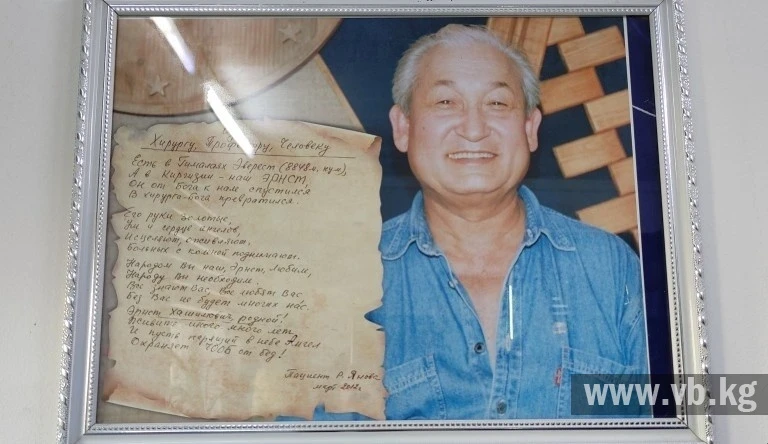 Хирургу, Профессору, Человеку
Есть в Гималаях Эверест (8848 м, пу-м),
А в Киргизии - наш ЭРНСТ
Он от Бога к нам спустился
В хирурга-бога превратился.
Его руки золотые,
Ум и сердце ангелов,
Исцеляют, оживляют,
Больных с коленей поднимают.
Народом Вы наш, Эрнст, любим,
Народу Вы необходим
Все знают Вас, все любят Вас
Без Вас не будет многих нас.
Эрнст Хашимович, родной!
Живите много много лет
И пусть парящий в небе Ангел
Охраняет ЧССБ от бед!
Пациент Р.
2012г.
www.vb.kg